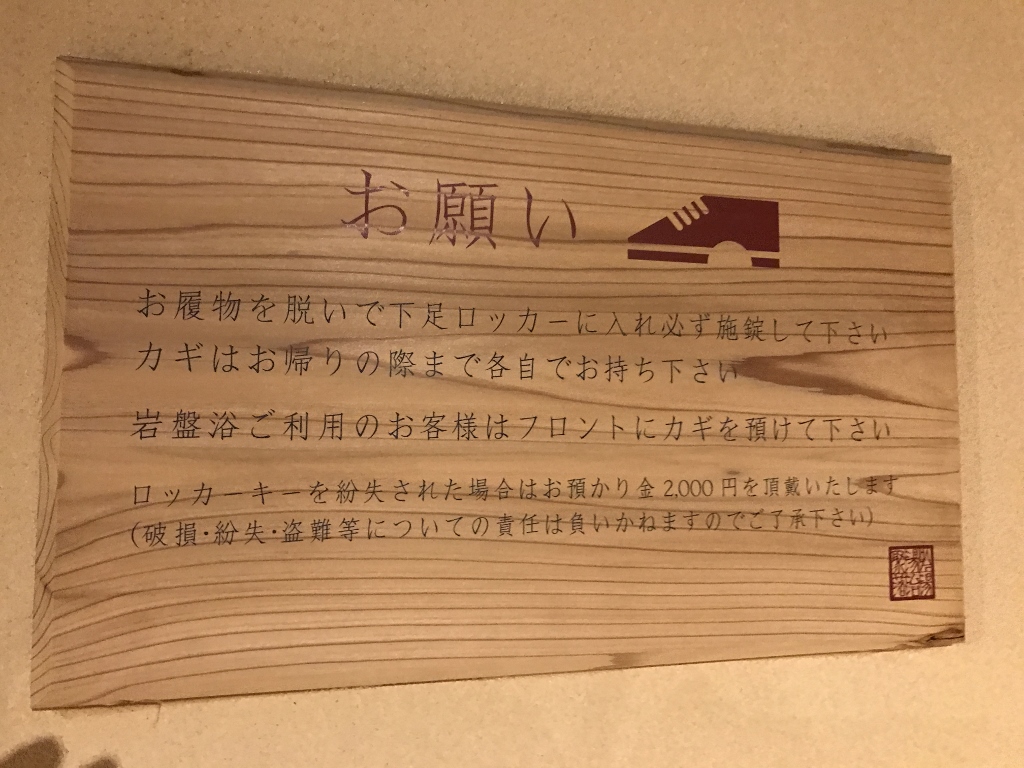 お願い
お履物を脱いで下足ロッカーに入れ必ず施錠して下さい
カギはお帰りの際まで各自でお持ち下さい
岩盤浴ご利用のお客様はフロントにカギを預けて下さい
ロッカーキーを紛失された場合はお預かり金2,000円を頂戴いたします
(破損・紛失・盗難等についての責任は負いかねますのでご了承下さい)